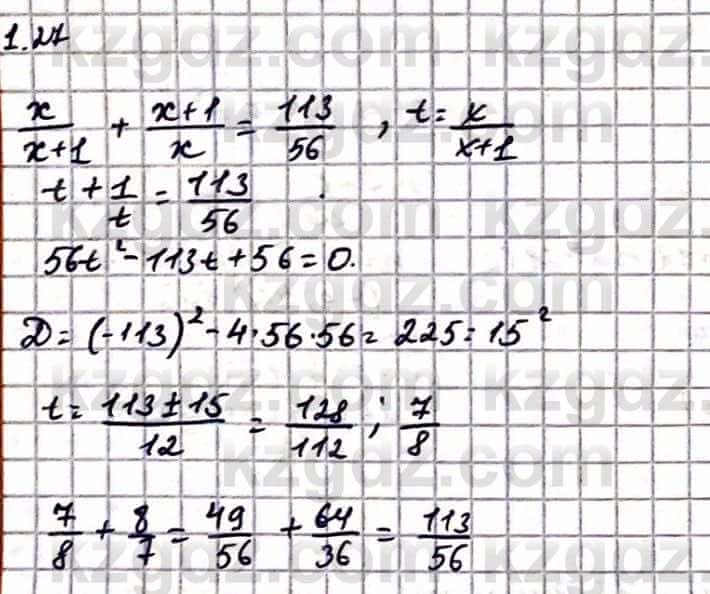 1.27
x/(x+1) + (x+1)/x = 113/56 , t = x/(x+1)
t + 1/t = 113/56 .
56t² - 113t + 56 = 0.
D = (-113)² - 4·56·56 = 225 = 15²
t = (113 ± 15)/12 = 128/112 ; 7/8
7/8 + 8/7 = 49/56 + 64/36 = 113/56
kzgdz.com